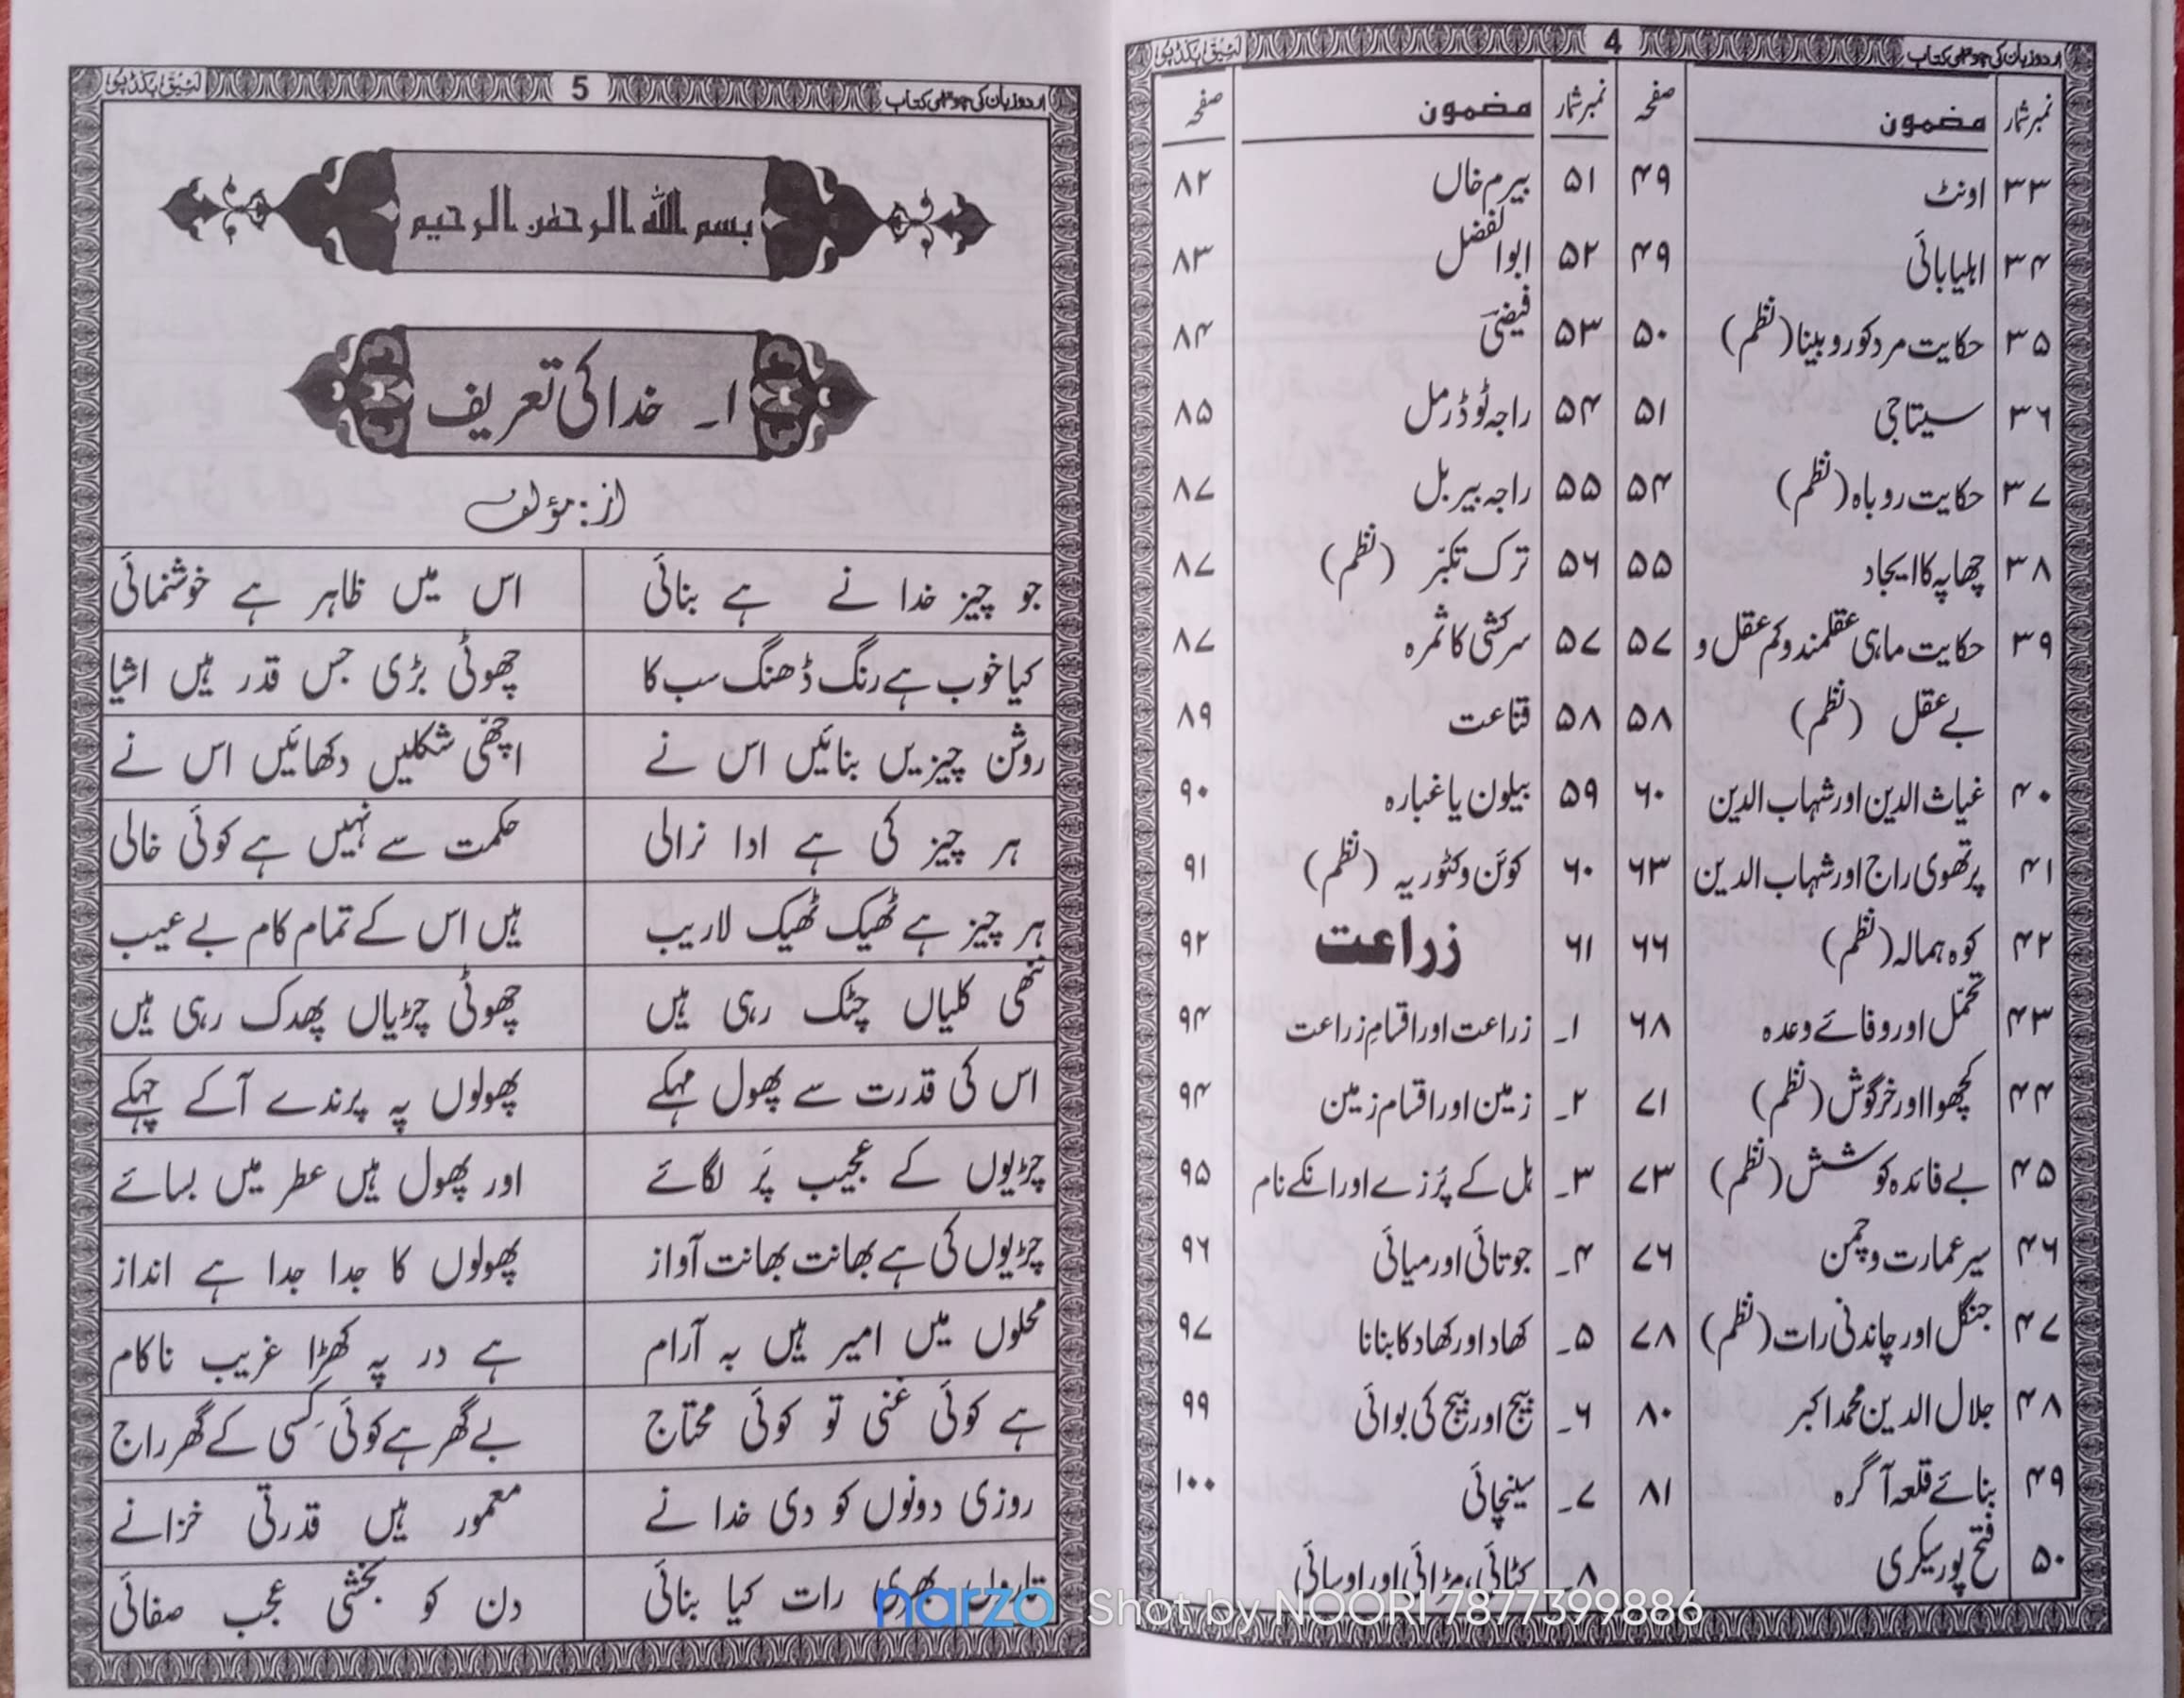 اردو زبان کی چوتھی کتاب 4 لئیق بکڈپو
نمبر شمار مضمون صفحہ نمبر شمار مضمون صفحہ
۳۳ اونٹ ۴۹ ۵۱ بیرم خاں ۸۲
۳۴ اہلیا بائی ۴۹ ۵۲ ابوالفضل ۸۳
۳۵ حکایت مرد کور و بینا (نظم) ۵۰ ۵۳ فیضیؔ ۸۴
۳۶ سیتا جی ۵۱ ۵۴ راجہ ٹوڈرمل ۸۵
۳۷ حکایت روباہ (نظم) ۵۴ ۵۵ راجہ بیربل ۸۷
۳۸ چھاپہ کا ایجاد ۵۵ ۵۶ ترک تکبّر (نظم) ۸۷
۳۹ حکایت ماہی عقلمند و کم عقل و ۵۷ ۵۷ سرکشی کا ثمرہ ۸۷
بے عقل (نظم) ۵۸ ۵۸ قناعت ۸۹
۴۰ غیاث الدین اور شہاب الدین ۶۰ ۵۹ بیلون یا غبارہ ۹۰
۴۱ پرتھوی راج اور شہاب الدین ۶۳ ۶۰ کوئن وکٹوریہ (نظم) ۹۱
۴۲ کوہ ہمالہ (نظم) ۶۶ ۶۱ زراعت ۹۲
۴۳ تحمّل اور وفائے وعدہ ۶۸ ۱۔ زراعت اور اقسامِ زراعت ۹۴
۴۴ کچھوا اور خرگوش (نظم) ۷۱ ۲۔ زمین اور اقسام زمین ۹۴
۴۵ بے فائدہ کوشش (نظم) ۷۳ ۳۔ ہل کے پُرزے اور انکے نام ۹۵
۴۶ سیر عمارت و چمن ۷۶ ۴۔ جوتائی اور میائی ۹۶
۴۷ جنگل اور چاندنی رات (نظم) ۷۸ ۵۔ کھاد اور کھاد کا بنانا ۹۷
۴۸ جلال الدین محمد اکبر ۸۰ ۶۔ بیج اور بیج کی بوائی ۹۹
۴۹ بنائے قلعہ آگرہ ۸۱ ۷۔ سینچائی ۱۰۰
۵۰ فتح پور سیکری ۸۔ کٹائی، مڑائی اور اوسائی
اردو زبان کی چوتھی کتاب 5 لئیق بکڈپو
بسم اللہ الرحمٰن الرحیم
۱۔ خدا کی تعریف
از: مؤلف
جو چیز خدا نے ہے بنائی اس میں ظاہر ہے خوشنمائی
کیا خوب ہے رنگ ڈھنگ سب کا چھوٹی بڑی جس قدر ہیں اشیا
روشن چیزیں بنائیں اس نے اچھّی شکلیں دکھائیں اس نے
ہر چیز کی ہے ادا نرالی حکمت سے نہیں ہے کوئی خالی
ہر چیز ہے ٹھیک ٹھیک لاریب ہیں اس کے تمام کام بے عیب
ننھی کلیاں چٹک رہی ہیں چھوٹی چڑیاں پھدک رہی ہیں
اس کی قدرت سے پھول مہکے پھولوں پہ پرندے آ کے چہکے
چڑیوں کے عجیب پَر لگائے اور پھول ہیں عطر میں بسائے
چڑیوں کی ہے بھانت بھانت آواز پھولوں کا جدا جدا ہے انداز
محلوں میں امیر ہیں بہ آرام ہے در پہ کھڑا غریب ناکام
ہے کوئی غنی تو کوئی محتاج بے گھر ہے کوئی کسی کے گھر راج
روزی دونوں کو دی خدا نے معمور ہیں قدرتی خزانے
تاروں بھری رات کیا بنائی دن کو بخشی عجب صفائی
narzo Shot by NOORI 7877399886